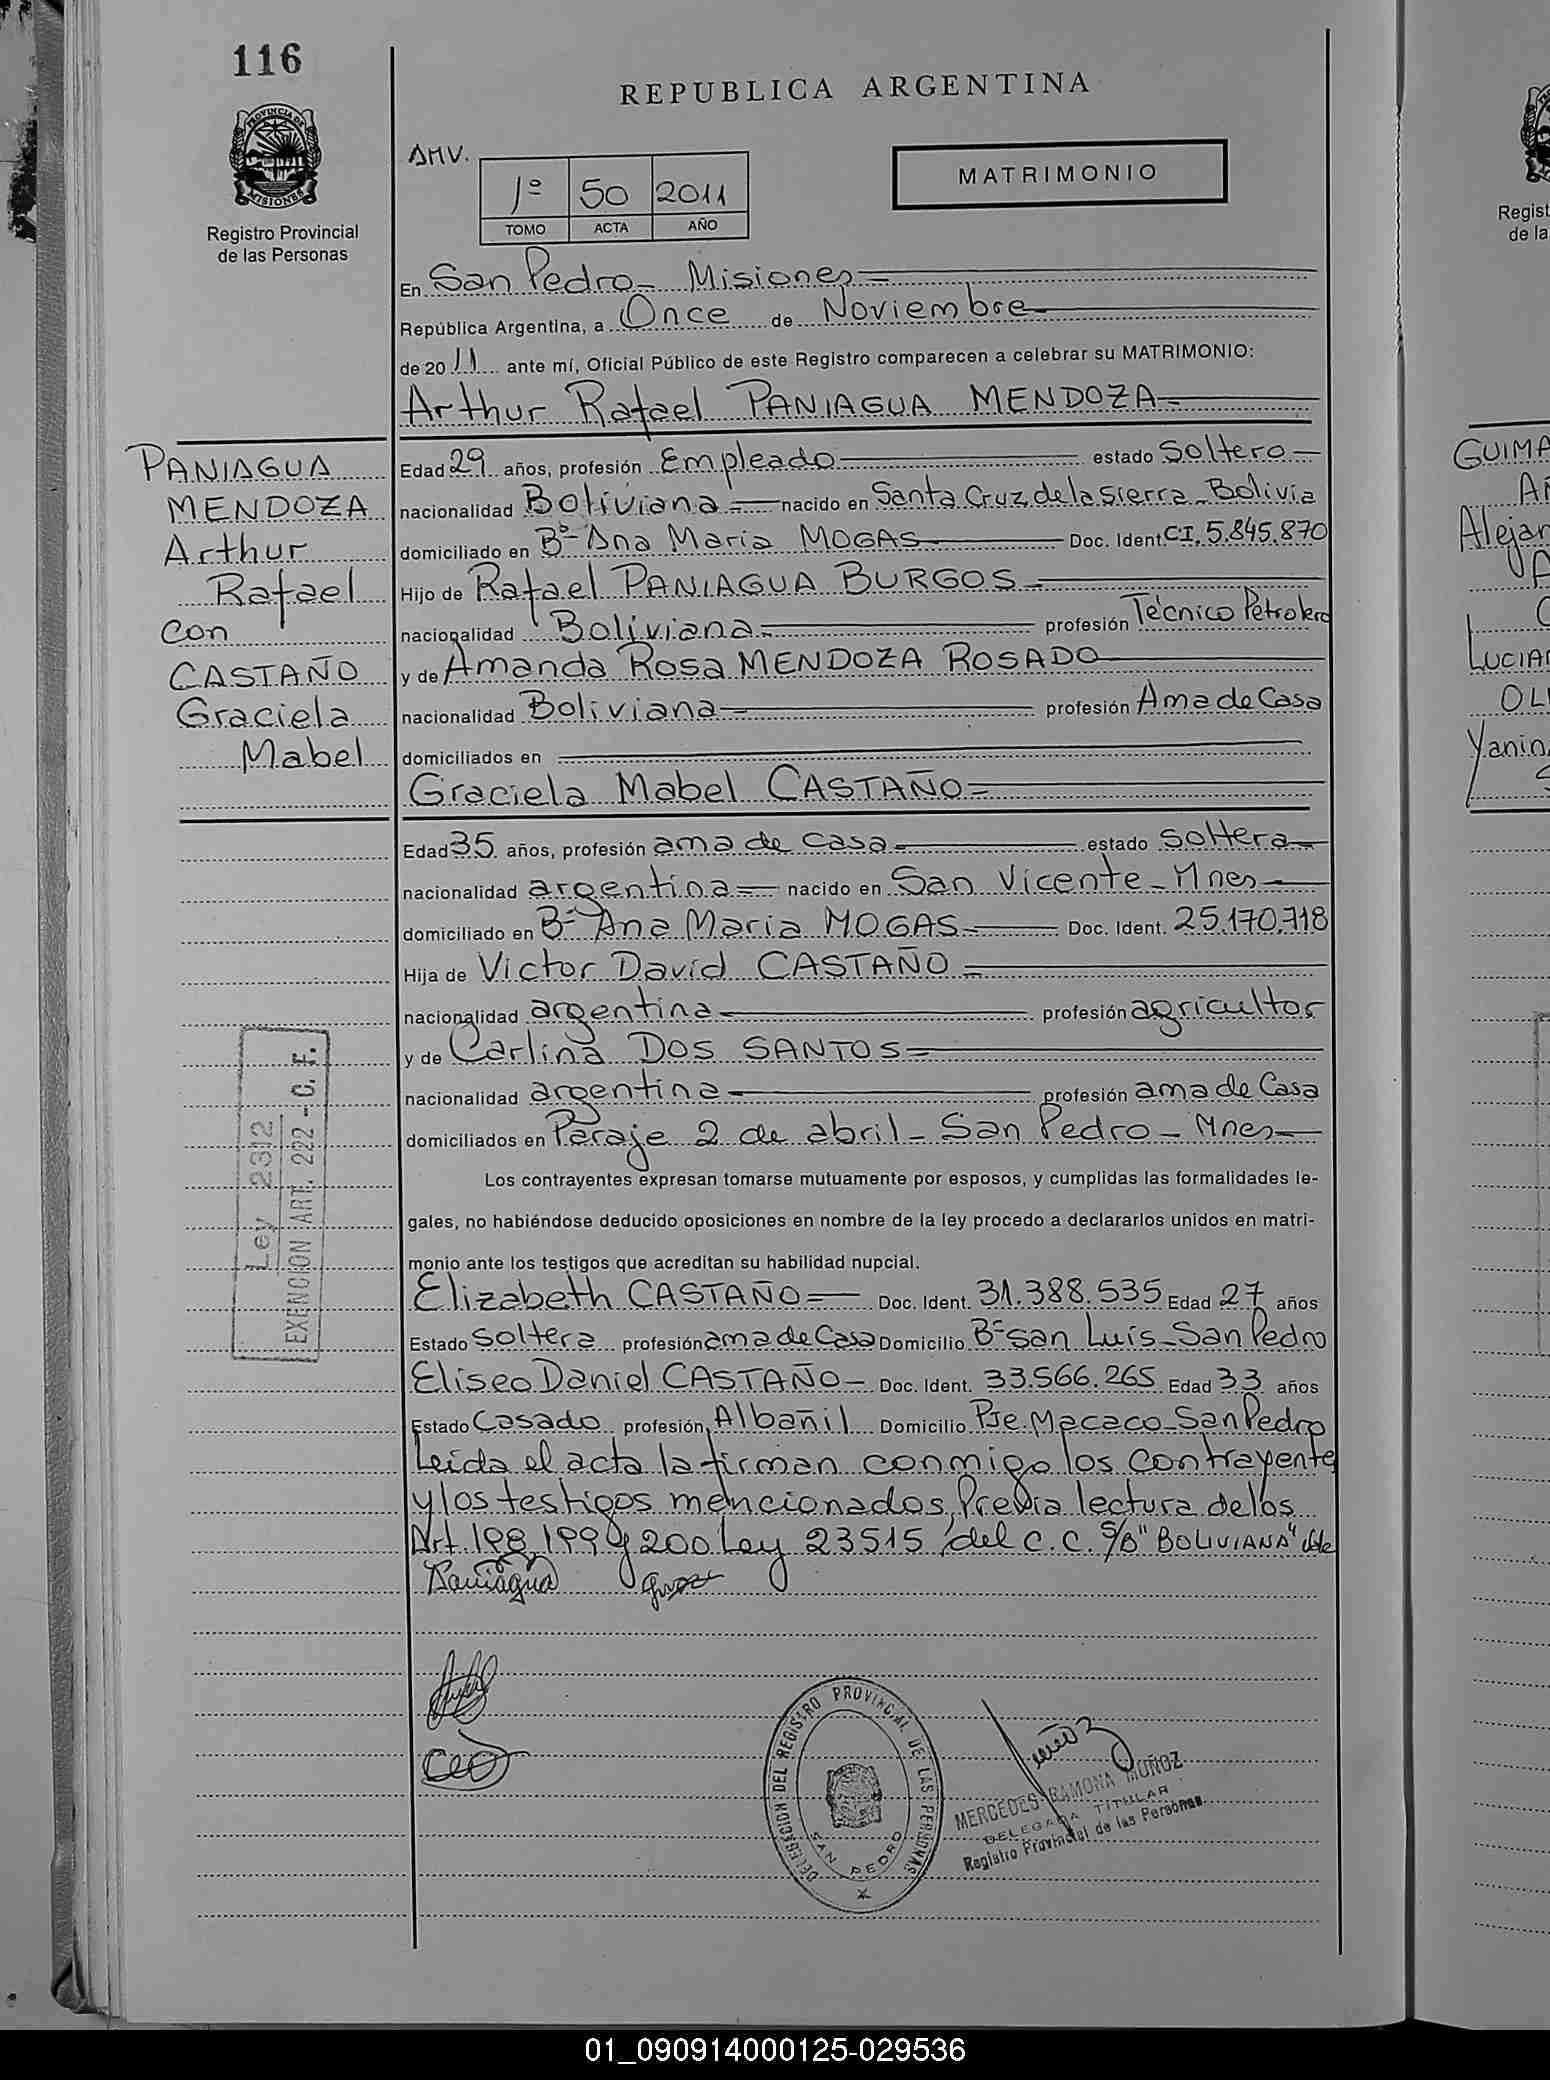 116
REPUBLICA ARGENTINA
PROVINCIA DE
MISIONES
Registro Provincial
de las Personas
AMV.
1º 50 2011
TOMO ACTA AÑO
MATRIMONIO
En San Pedro - Misiones
República Argentina, a Once de Noviembre
de 2011 ante mí, Oficial Público de este Registro comparecen a celebrar su MATRIMONIO:
Arthur Rafael PANIAGUA MENDOZA
PANIAGUA
MENDOZA
Arthur
Rafael
con
CASTAÑO
Graciela
Mabel
Edad 29 años, profesión Empleado estado Soltero
nacionalidad Boliviana nacido en Santa Cruz de la Sierra - Bolivia
domiciliado en Bº Ana Maria MOGAS Doc. Ident. CI. 5.845.870
Hijo de Rafael PANIAGUA BURGOS
nacionalidad Boliviana profesión Técnico Petrolero
y de Amanda Rosa MENDOZA ROSADO
nacionalidad Boliviana profesión Ama de Casa
domiciliados en
Graciela Mabel CASTAÑO
Edad 35 años, profesión ama de casa estado soltera
nacionalidad argentina nacido en San Vicente - Mnes
domiciliado en Bº Ana Maria MOGAS Doc. Ident. 25.170.718
Hija de Victor David CASTAÑO
nacionalidad argentina profesión agricultor
y de Carlina DOS SANTOS
nacionalidad argentina profesión ama de Casa
domiciliados en Paraje 2 de abril - San Pedro - Mnes
Ley 2312
EXENCION ART. 222 - C. F.
Los contrayentes expresan tomarse mutuamente por esposos, y cumplidas las formalidades le-
gales, no habiéndose deducido oposiciones en nombre de la ley procedo a declararlos unidos en matri-
monio ante los testigos que acreditan su habilidad nupcial.
Elizabeth CASTAÑO Doc. Ident. 31.388.535 Edad 27 años
Estado soltera profesión ama de Casa Domicilio Bº San Luis - San Pedro
Eliseo Daniel CASTAÑO - Doc. Ident. 33.566.265 Edad 33 años
Estado Casado profesión Albañil Domicilio Pje. Macaco - San Pedro
Leida el acta la firman conmigo los contrayente
y los testigos mencionados, Previa lectura de los
Art. 198, 199 y 200 Ley 23515 del C. C. S/B "BOLIVIANA" Vale
Paniagua
DELEGACION DEL REGISTRO PROVINCIAL DE LAS PERSONAS
SAN PEDRO
MERCEDES RAMONA MUÑOZ
DELEGADA TITULAR
Registro Provincial de las Personas
Regist
de la
GUIMA
Alejan
LUCIAN
OLI
Yanin
01_090914000125-029536